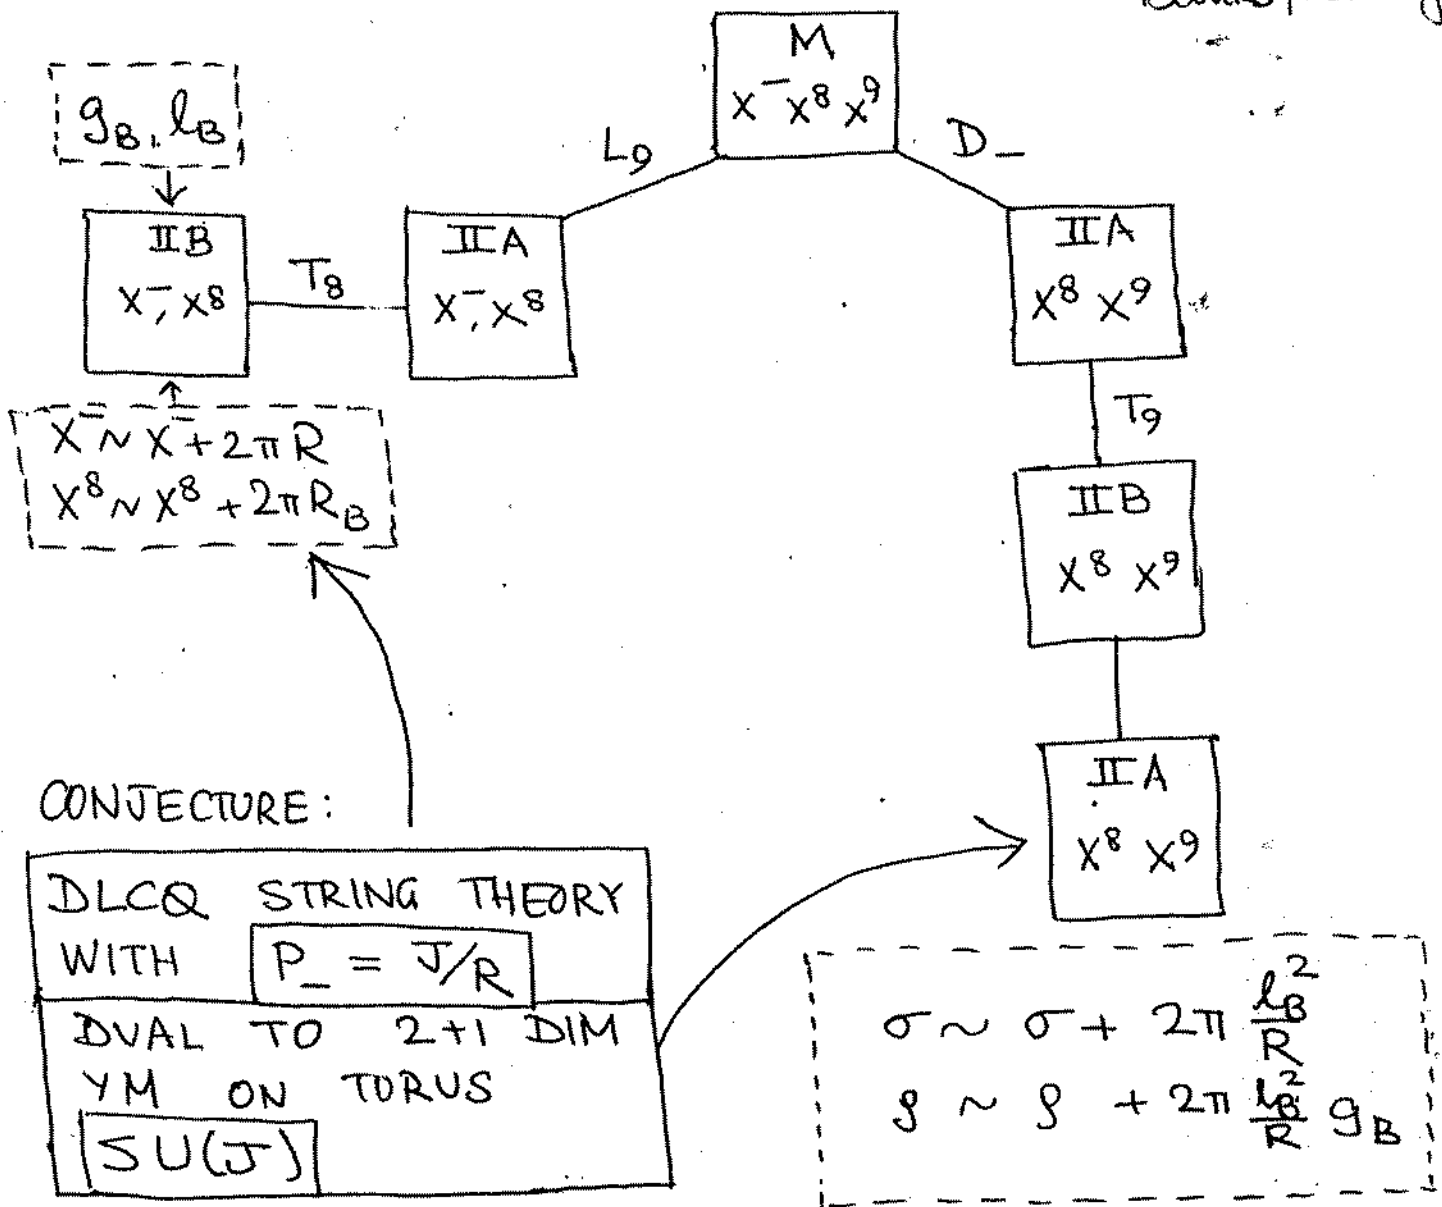 M
X⁻ X⁸ X⁹
g_B, l_B
L₉
D_
IIB
X⁻, X⁸
T₈
IIA
X⁻, X⁸
IIA
X⁸ X⁹
X⁻ ~ X⁻ + 2π R
X⁸ ~ X⁸ + 2π R_B
T₉
IIB
X⁸ X⁹
IIA
X⁸ X⁹
CONJECTURE:
DLCQ STRING THEORY
WITH P_ = J/R
DUAL TO 2+1 DIM
YM ON TORUS
SU(J)
σ ~ σ + 2π l_B²/R
ρ ~ ρ + 2π l_B²/R g_B